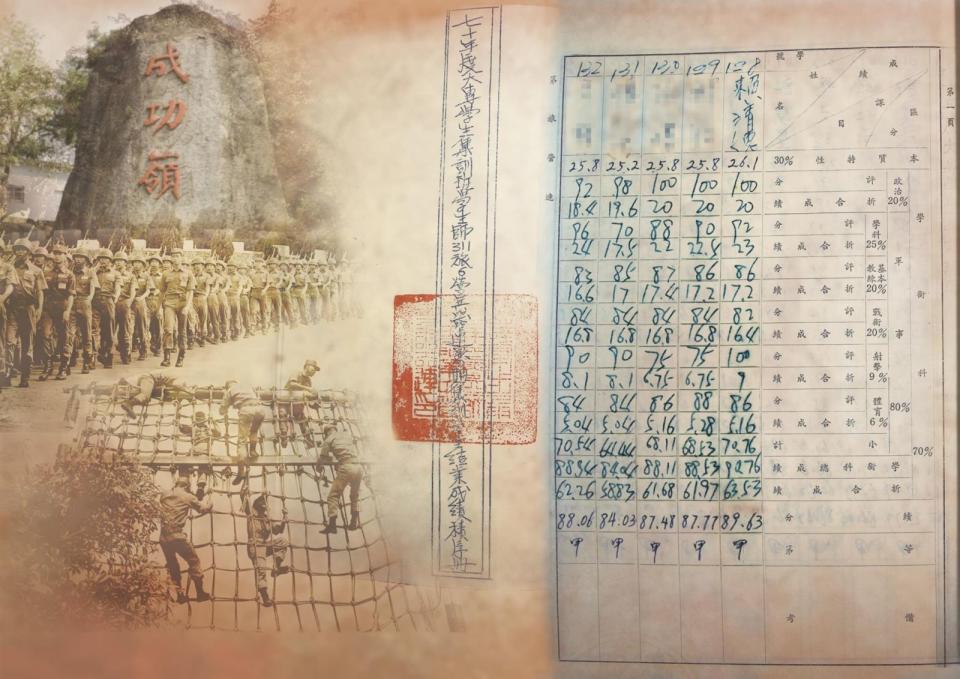 成功嶺
七十年度大專學生集訓班學生師311旅
第一頁
第 旅 營 連
學號 132 131 130 129 128
姓名 賴清德
成績 課目 區分
本質特性 30% 25.8 25.2 25.8 25.8 26.1
學術科 70%
政治 20% 評分 92 98 100 100 100
折合成績 18.4 19.6 20 20 20
軍事 80%
學科 25% 評分 96 70 88 90 92
折合成績 24 17.5 22 22.5 23
基本教練 20% 評分 83 85 87 86 86
折合成績 16.6 17 17.4 17.2 17.2
戰術 20% 評分 84 84 84 84 82
折合成績 16.8 16.8 16.8 16.8 16.4
射擊 9% 評分 90 90 75 75 100
折合成績 8.1 8.1 6.75 6.75 9
體育 6% 評分 84 84 86 88 86
折合成績 5.04 5.04 5.16 5.28 5.16
小計 70.54 64.44 68.11 68.53 70.76
學術科總成績 88.94 84.04 88.11 88.53 90.76
折合成績 62.26 58.83 61.68 61.97 63.53
績分 88.06 84.03 87.48 87.77 89.63
等第 甲 甲 甲 甲 甲
備考